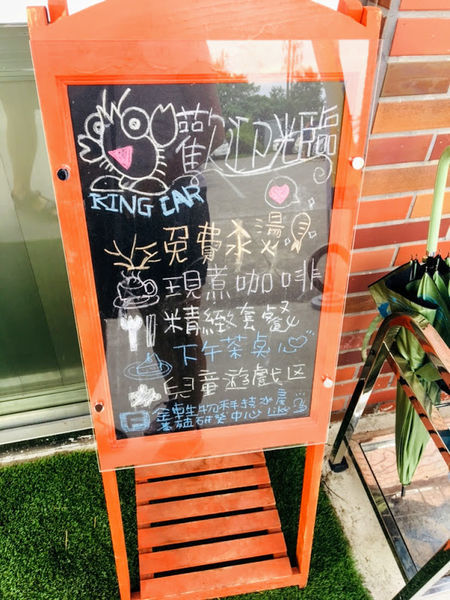 歡迎光臨
KING CAR
免費汆燙
現煮咖啡
精緻套餐
下午茶奌心
兒童遊戲区
金車生物科技水產
養殖研發中心 Like